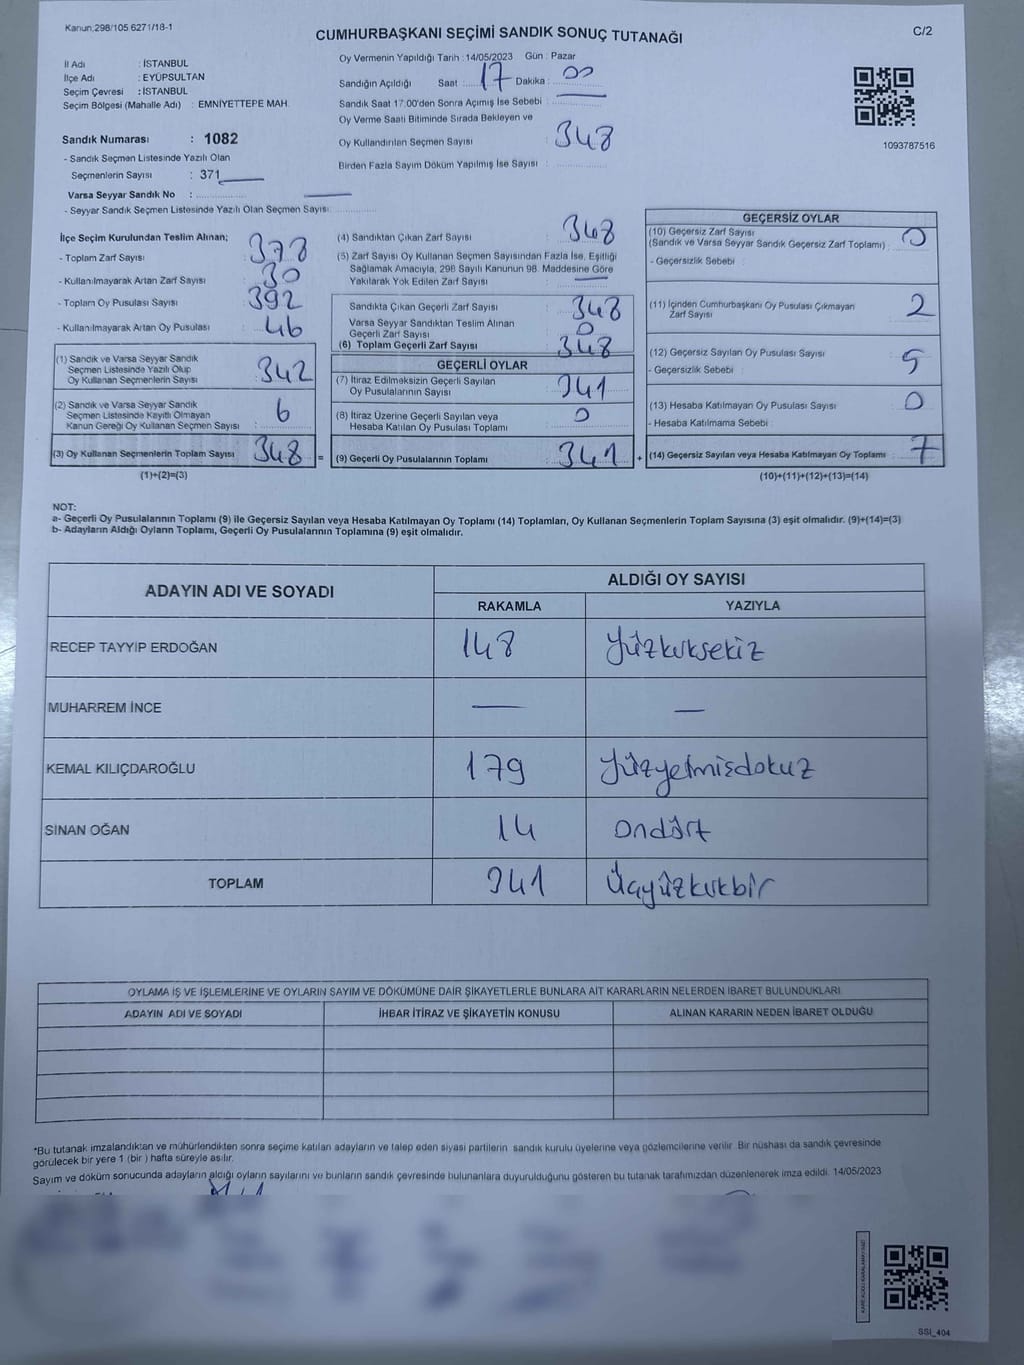 Kanun:298/105 6271/18-1
CUMHURBAŞKANI SEÇİMİ SANDIK SONUÇ TUTANAĞI
C/2
İl Adı : İSTANBUL
İlçe Adı : EYÜPSULTAN
Seçim Çevresi : İSTANBUL
Seçim Bölgesi (Mahalle Adı) : EMNİYETTEPE MAH.
Sandık Numarası : 1082
- Sandık Seçmen Listesinde Yazılı Olan
Seçmenlerin Sayısı : 371
Varsa Seyyar Sandık No :
- Seyyar Sandık Seçmen Listesinde Yazılı Olan Seçmen Sayısı:
Oy Vermenin Yapıldığı Tarih : 14/05/2023 Gün : Pazar
Sandığın Açıldığı Saat : 17 Dakika : 00
Sandık Saat 17:00'den Sonra Açımış İse Sebebi :
Oy Verme Saati Bitiminde Sırada Bekleyen ve
Oy Kullandırılan Seçmen Sayısı : 348
Birden Fazla Sayım Döküm Yapılmış İse Sayısı :
1093787516
İlçe Seçim Kurulundan Teslim Alınan;
- Toplam Zarf Sayısı : 378
- Kullanılmayarak Artan Zarf Sayısı : 30
- Toplam Oy Pusulası Sayısı : 392
- Kullanılmayarak Artan Oy Pusulası : 46
(1) Sandık ve Varsa Seyyar Sandık
Seçmen Listesinde Yazılı Olup
Oy Kullanan Seçmenlerin Sayısı : 342
(2) Sandık ve Varsa Seyyar Sandık
Seçmen Listesinde Kayıtlı Olmayan
Kanun Gereği Oy Kullanan Seçmen Sayısı : 6
(3) Oy Kullanan Seçmenlerin Toplam Sayısı : 348 =
(1)+(2)=(3)
(4) Sandıktan Çıkan Zarf Sayısı : 348
(5) Zarf Sayısı Oy Kullanan Seçmen Sayısından Fazla İse, Eşitliği
Sağlamak Amacıyla, 298 Sayılı Kanunun 98. Maddesine Göre
Yakılarak Yok Edilen Zarf Sayısı :
Sandıkta Çıkan Geçerli Zarf Sayısı : 348
Varsa Seyyar Sandıktan Teslim Alınan
Geçerli Zarf Sayısı : 0
(6) Toplam Geçerli Zarf Sayısı : 348
GEÇERLİ OYLAR
(7) İtiraz Edilmeksizin Geçerli Sayılan
Oy Pusulalarının Sayısı : 341
(8) İtiraz Üzerine Geçerli Sayılan veya
Hesaba Katılan Oy Pusulası Toplamı : 0
(9) Geçerli Oy Pusulalarının Toplamı : 341 +
GEÇERSİZ OYLAR
(10) Geçersiz Zarf Sayısı
(Sandık ve Varsa Seyyar Sandık Geçersiz Zarf Toplamı) : 0
- Geçersizlik Sebebi :
(11) İçinden Cumhurbaşkanı Oy Pusulası Çıkmayan
Zarf Sayısı : 2
(12) Geçersiz Sayılan Oy Pusulası Sayısı : 5
- Geçersizlik Sebebi :
(13) Hesaba Katılmayan Oy Pusulası Sayısı : 0
- Hesaba Katılmama Sebebi :
(14) Geçersiz Sayılan veya Hesaba Katılmayan Oy Toplamı : 7
(10)+(11)+(12)+(13)=(14)
NOT:
a- Geçerli Oy Pusulalarının Toplamı (9) ile Geçersiz Sayılan veya Hesaba Katılmayan Oy Toplamı (14) Toplamları, Oy Kullanan Seçmenlerin Toplam Sayısına (3) eşit olmalıdır. (9)+(14)=(3)
b- Adayların Aldığı Oyların Toplamı, Geçerli Oy Pusulalarının Toplamına (9) eşit olmalıdır.
ADAYIN ADI VE SOYADI ALDIĞI OY SAYISI
RAKAMLA YAZIYLA
RECEP TAYYİP ERDOĞAN 148 Yüzkırksekiz
MUHARREM İNCE — —
KEMAL KILIÇDAROĞLU 179 Yüzyetmişdokuz
SİNAN OĞAN 14 Ondört
TOPLAM 341 Üçyüzkırkbir
OYLAMA İŞ VE İŞLEMLERİNE VE OYLARIN SAYIM VE DÖKÜMÜNE DAİR ŞİKAYETLERLE BUNLARA AİT KARARLARIN NELERDEN İBARET BULUNDUKLARI
ADAYIN ADI VE SOYADI İHBAR İTİRAZ VE ŞİKAYETİN KONUSU ALINAN KARARIN NEDEN İBARET OLDUĞU
*Bu tutanak imzalandıktan ve mühürlendikten sonra seçime katılan adayların ve talep eden siyasi partilerin sandık kurulu üyelerine veya gözlemcilerine verilir. Bir nüshası da sandık çevresinde
görülecek bir yere 1 (bir ) hafta süreyle asılır.
Sayım ve döküm sonucunda adayların aldığı oyların sayılarını ve bunların sandık çevresinde bulunanlara duyurulduğunu gösteren bu tutanak tarafımızdan düzenlenerek imza edildi. 14/05/2023
SSI_404